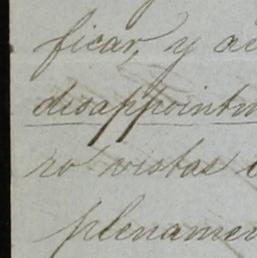 ficar, y ac
disappointm
ro vistas
plenamen